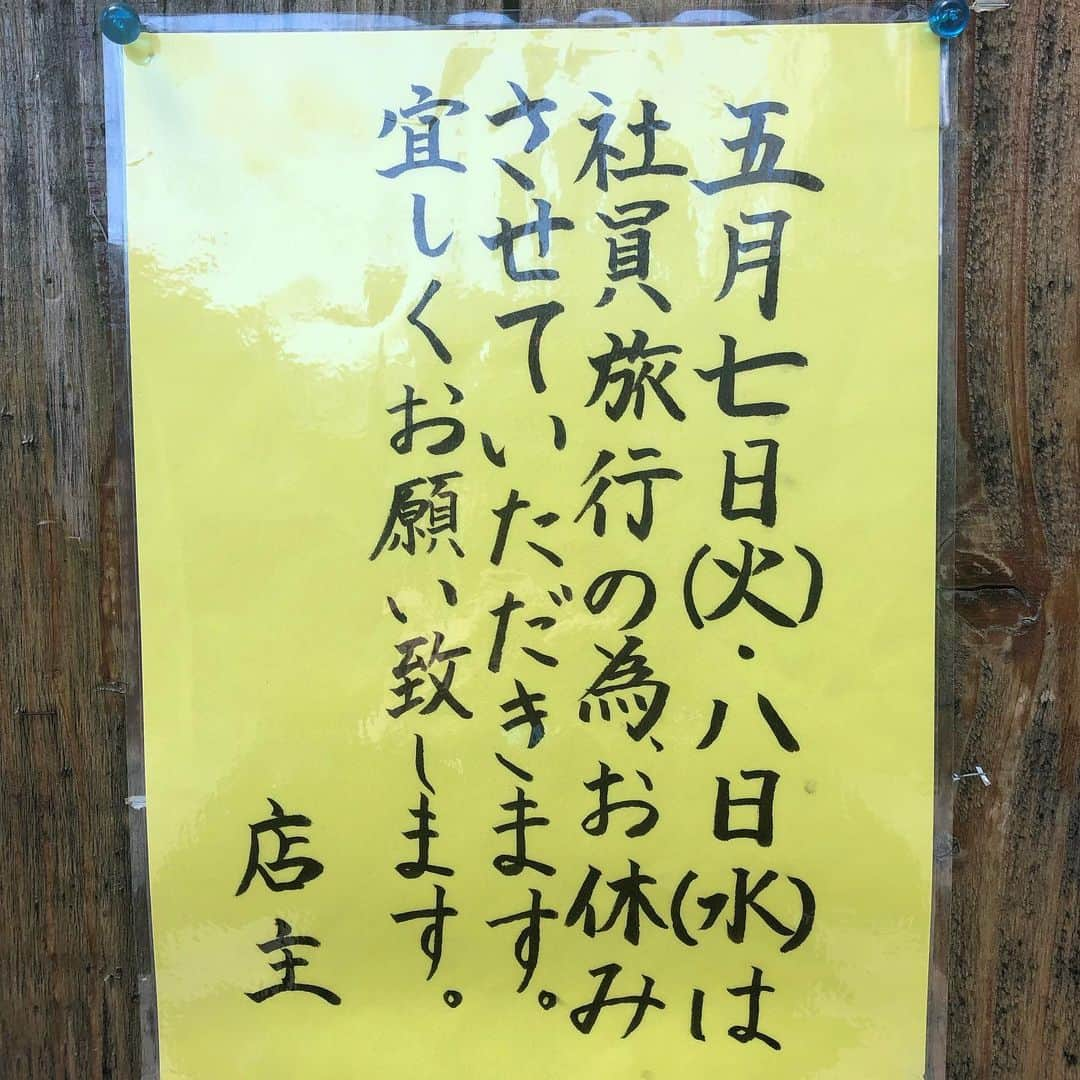 五月七日(火)・八日(水)は
社員旅行の為、お休み
させていただきます。
宜しくお願い致します。
店主